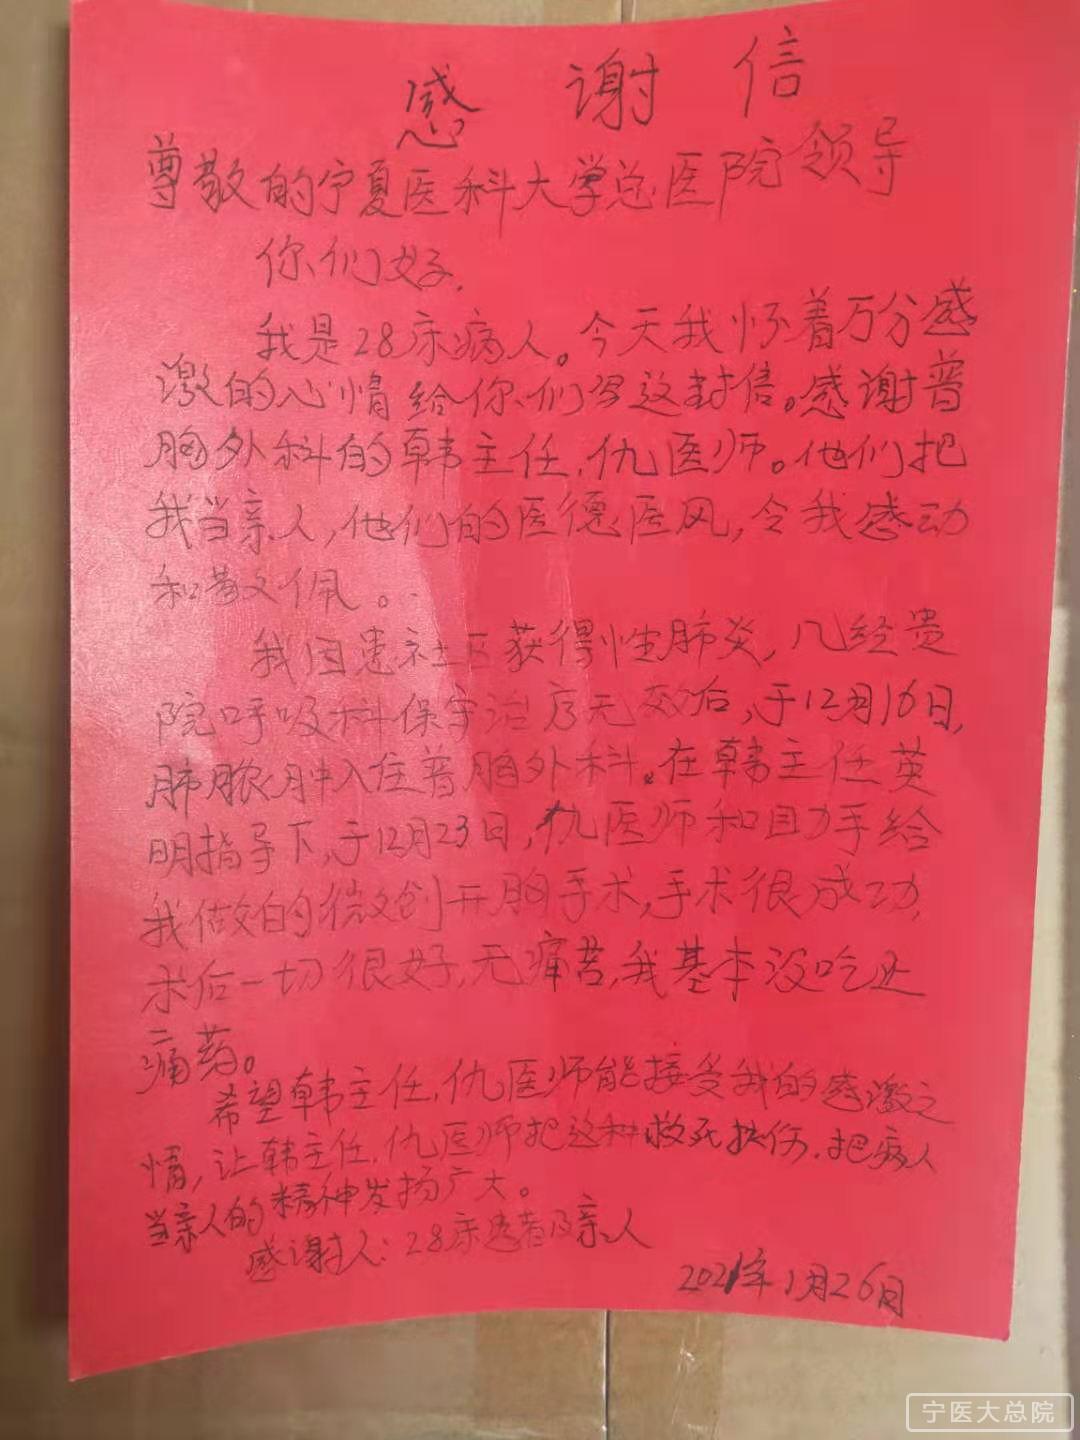 感谢信
尊敬的宁夏医科大学总医院领导
你们好.
我是28床病人。今天我怀着万分感
激的心情给你们写这封信。感谢普
胸外科的韩主任.仇医师。他们把
我当亲人,他们的医德医风,令我感动
和敬佩。
我因患社区获得性肺炎,几经贵
院呼吸科保守治疗无效后,于12月16日,
肺脓肿入住普胸外科。在韩主任英
明指导下,于12月23日,仇医师和助手给
我做的微创开胸手术,手术很成功,
术后一切很好,无痛苦,我基本没吃止
痛药。
希望韩主任.仇医师能接受我的感激之
情,让韩主任.仇医师把这种救死扶伤.把病人
当亲人的精神发扬广大。
感谢人:28床患者及亲人
2021年1月26日
宁医大总院